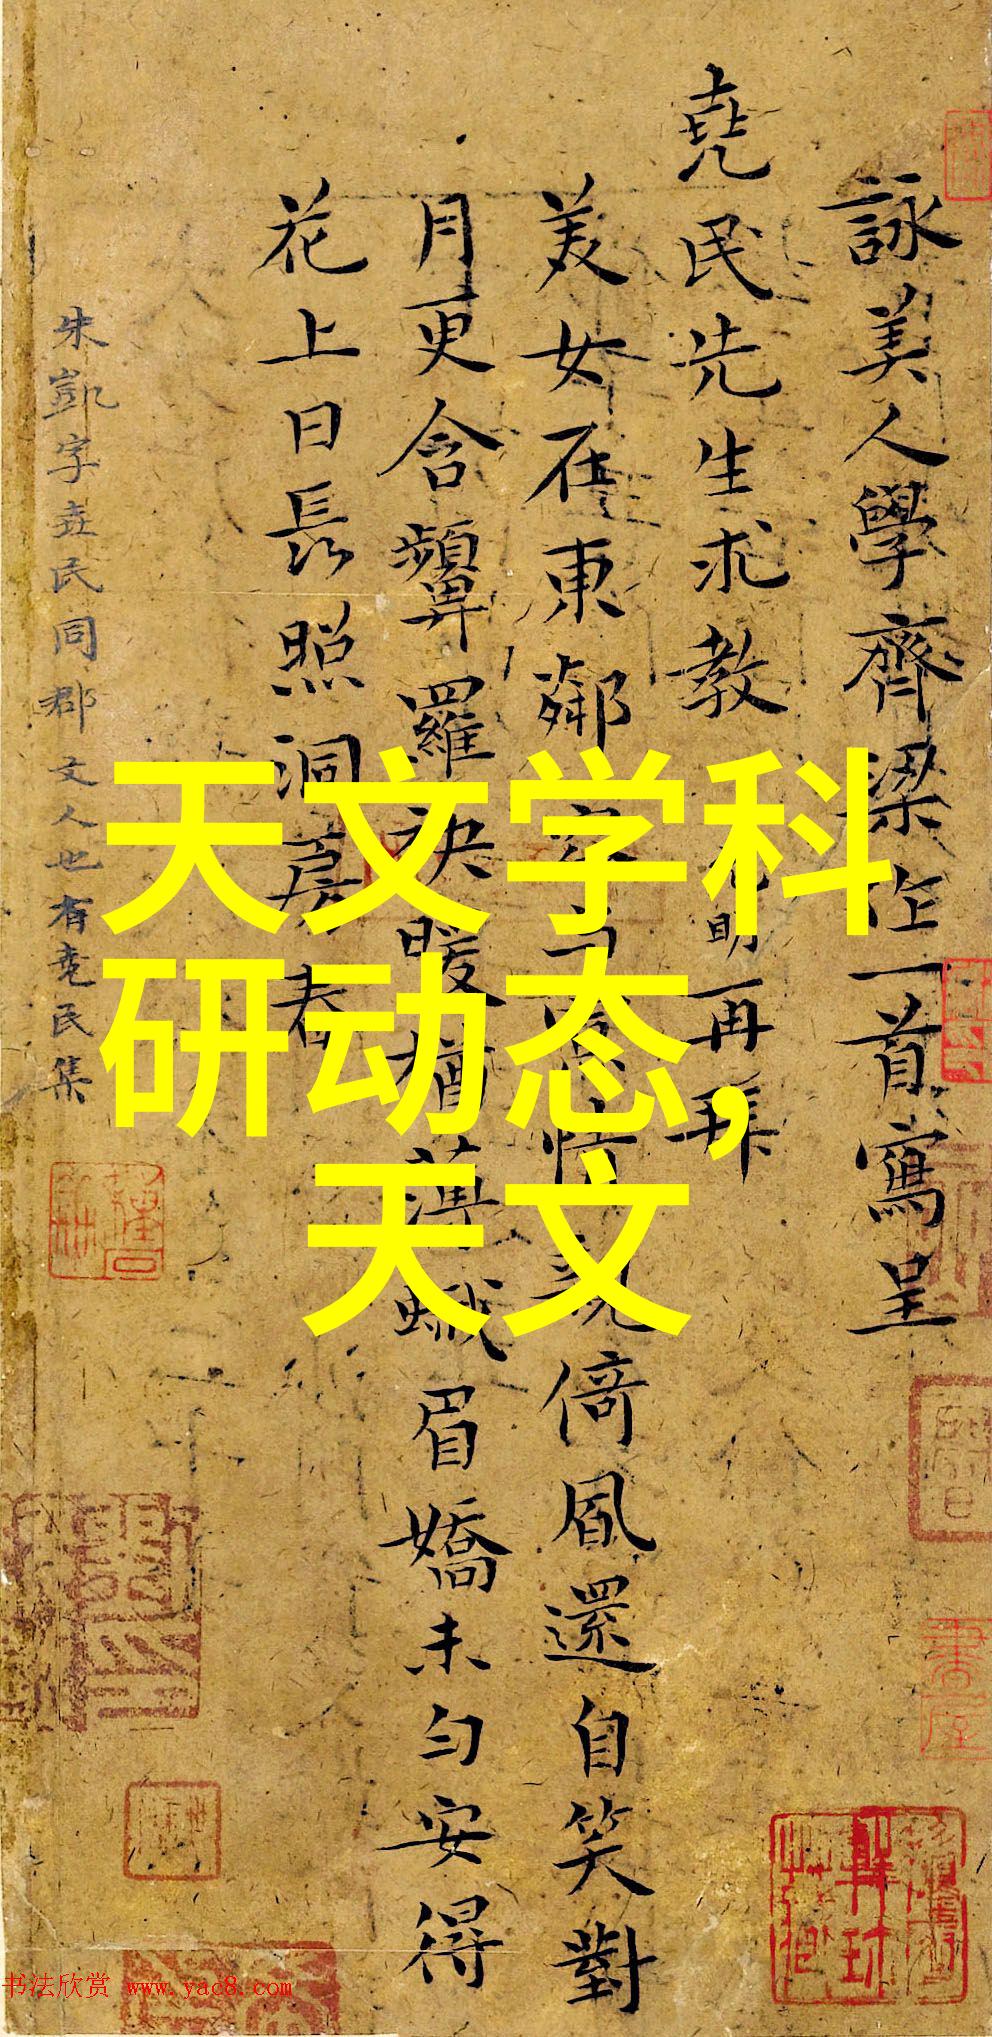 詠美人學齊梁作一首寫呈
堯民先生求教
再拜
美女在東鄰
倚風還自笑對
月更含顰羅袂暖
蛾眉嬌未勻安得
花上日長照洞房春
朱凱字堯民同郡文人也有堯民集
天文学科
研动态,
天文
书法欣赏 www.yac8.com